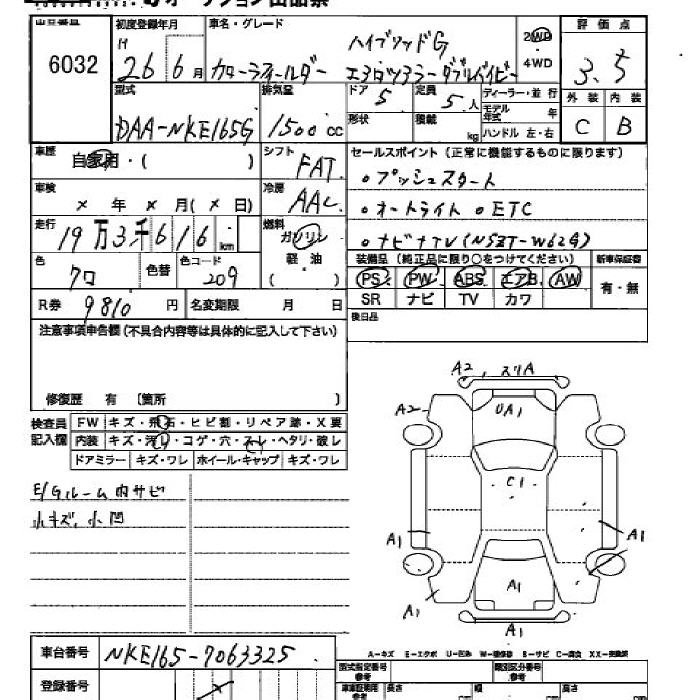 出品番号 初度登録年月 車名・グレード 評価点
6032
H 26年 6月
カローラフィールダー ハイブリッドG
エアロツアラーダブルバイビー
2WD 4WD
3.5
型式 排気量 ドア 定員 ディーラー・並行 外装 内装
DAA-NKE165G 1500cc 5 5人
モデル年式 年
形状 積載 kg ハンドル 左・右
C B
車歴 自家用・( ) シフト FAT
セールスポイント(正常に機能するものに限ります)
○プッシュスタート
車検 × 年 × 月(× 日) 冷房 AAC
○オートライト ○ETC
走行 19万3千616km 燃料 ガソリン 軽油 ( )
○ナビナTV(NSZT-W62G)
色 クロ 色替 色コード 209
装備品(純正品に限り○をつけてください) 新車保証書
PS PW ABS エアB AW 有・無
SR ナビ TV カワ
R券 9810円 名変期限 月 日
後日品
注意事項申告欄(不具合内容等は具体的に記入して下さい)
修復歴 有 〔箇所 〕
検査員記入欄
FW キズ・飛石・ヒビ割・リペア跡・X要
内装 キズ・汚レ・コゲ・穴・スレ・ヘタリ・破レ
ドアミラー キズ・ワレ ホイール・キャップ キズ・ワレ
E/Gルーム内サビ
小キズ、小凹
A2, スリA
A2
UA1
C1
A1
A1
A1
A1
A1
A-キズ E-エクボ U-凹み W-補修跡 B-サビ C-腐食 XX-交換済
車台番号 NKE165-7063325
型式指定番号 参考 類別区分番号 参考
登録番号
長さ 幅 高さ